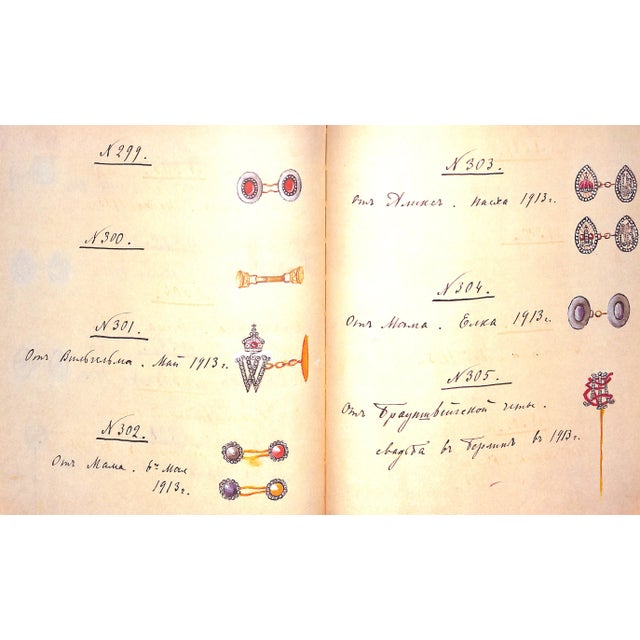 N 299.
N 300.
N 301.
Отъ Вильгельма. Май 1913 г.
N 302.
Отъ Мама. 6го мая
1913 г.
N 303.
Отъ Аликсъ. Пасха 1913 г.
N 304.
Отъ Мама. Елка 1913 г.
N 305.
Отъ Брауншвейгской четы.
свадьба въ Берлинѣ въ 1913 г.